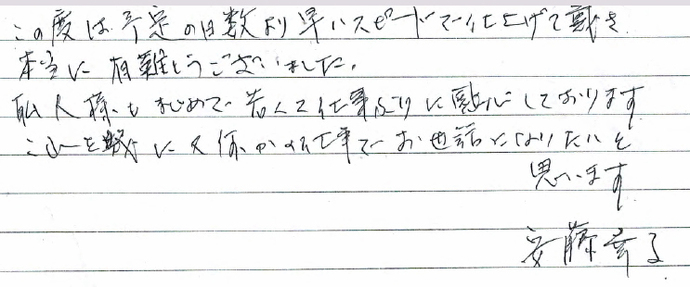 この度は予定の日数より早いスピードで仕上げて戴き
本当に有難とうございました。
人様も まじめで 仕事ぶりに感心しております
これを機に又何かの仕事でお世話になりたいと
思います
安藤